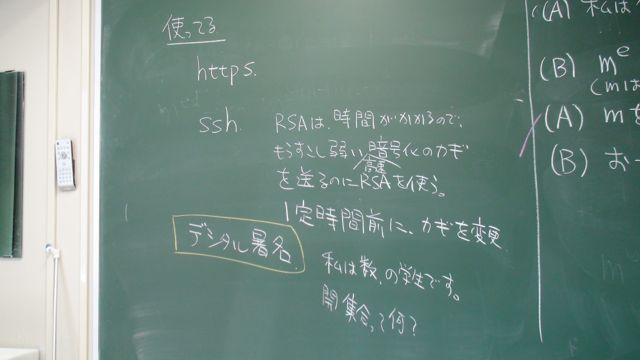 使ってる
https.
ssh.
RSAは、時間がかかるので、
もうすこし弱い暗号化のカギ
高速
を送るのにRSAを使う。
1定時間前に、カギを変更
デジタル署名.
私は数.の学生です。
開集合って何?
(A) 私は
(B) m^e
(mは
(A) mを
(B) お
m